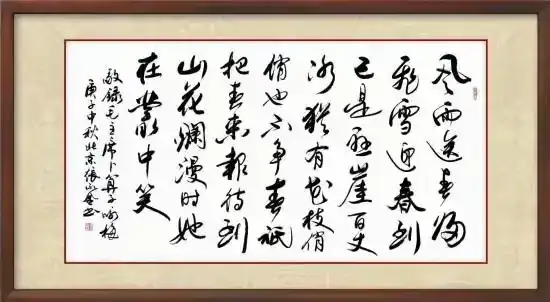 风雨送春归
飛雪迎春到
已是悬崖百丈
冰犹有花枝俏
俏也不争春祇
把春来报待到
山花爛漫时她
在叢中笑
敬録毛主席卜算子咏梅
庚子中秋北京張山书